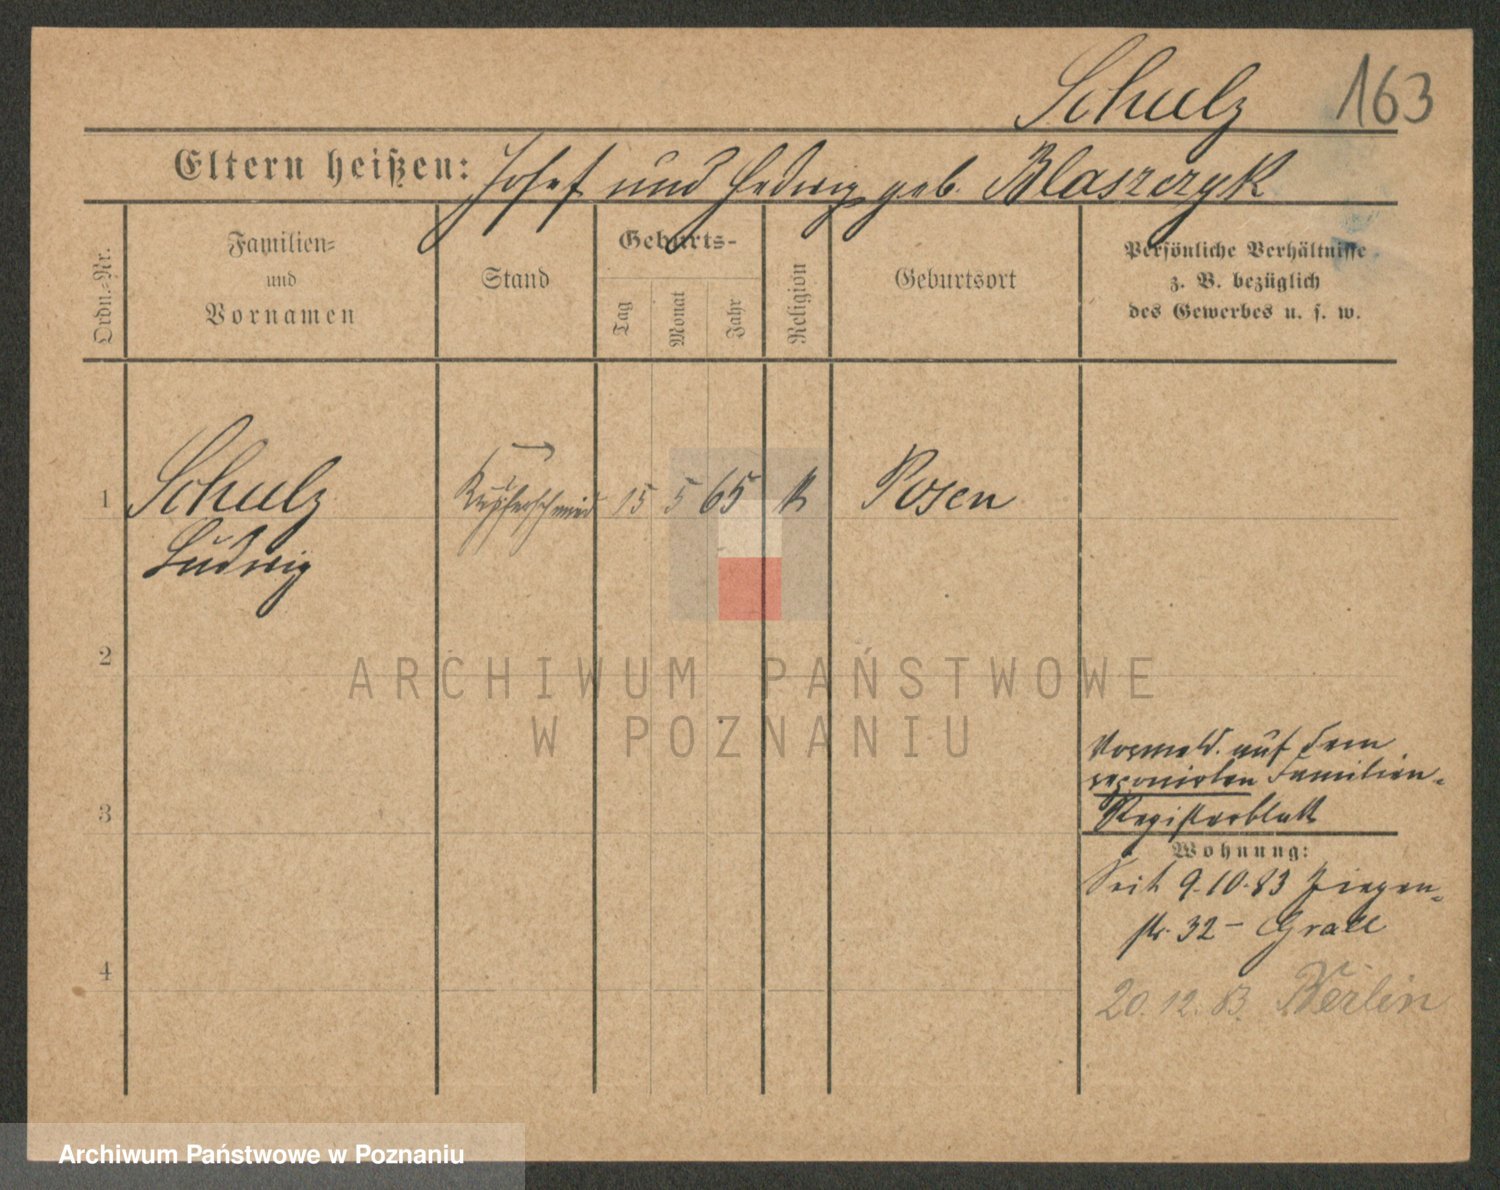 Schulz 163
Eltern heißen: Josef und Hedwig geb. Blaszczyk
Ordn.-Nr.
Familien-
und
Vornamen
Stand
Geburts-
Tag
Monat
Jahr
Religion
Geburtsort
Persönliche Verhältnisse
z. B. bezüglich
des Gewerbes u. s. w.
1 Schulz Kupferschmied 15 5 65 k Posen
Ludwig
2
ARCHIWUM PAŃSTWOWE
W POZNANIU
Vormeld. auf dem
reponirten Familien-
3 Registerblatt
Wohnung:
Seit 9.10.83 Ziegen-
str. 32 -
4 20.12.83. Berlin
Archiwum Państwowe w Poznaniu